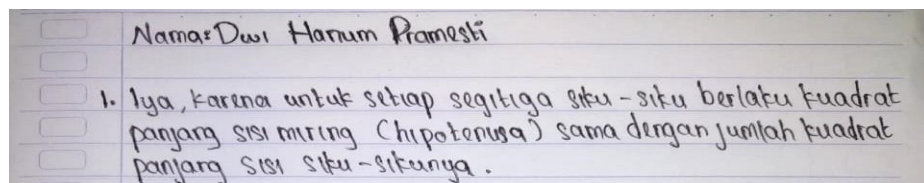 Nama: Dwi Hanum Pramesti
1. Iya, karena untuk setiap segitiga siku-siku berlaku kuadrat
panjang sisi miring (hipotenusa) sama dengan jumlah kuadrat
panjang sisi siku-sikunya.